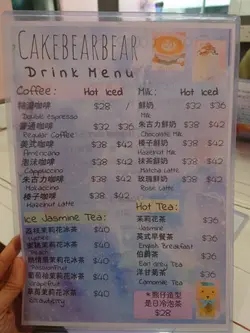 CAKEBEARBEAR
Drink Menu
Coffee: Hot Iced
特濃咖啡 $28 /
Double espresso
普通咖啡 $32 $36
Regular Coffee
美式咖啡 $38 $42
Americano
泡沫咖啡 $38 $42
Cappuccino
朱古力咖啡 $38 $42
Mochaccino
榛子咖啡 $38 $42
Hazelnut Latte
Ice Jasmine Tea:
荔枝茉莉花冰茶 $40
Lychee
蜜桃茉莉花冰茶 $40
熱情果茉莉花冰茶 $40
Passionfruit
西柚茉莉花冰茶 $40
Grapefruit
草莓茉莉花冰茶 $40
Strawberry
Milk: Hot Iced
鮮奶 $32 $36
Milk
朱古力鮮奶 $38 $42
Chocolate Milk
榛子鮮奶 $38 $42
Hazelnut Milk
抹茶鮮奶 $38 $42
Matcha Latte
玫瑰鮮奶 $38 $42
Rose Latte
Hot Tea:
茉莉花 $36
Jasmine
英式早餐茶 $36
English Breakfast
伯爵茶 $36
Earl Grey Tea
洋甘菊茶 $36
Camomile Tea
是日冷泡茶
$28